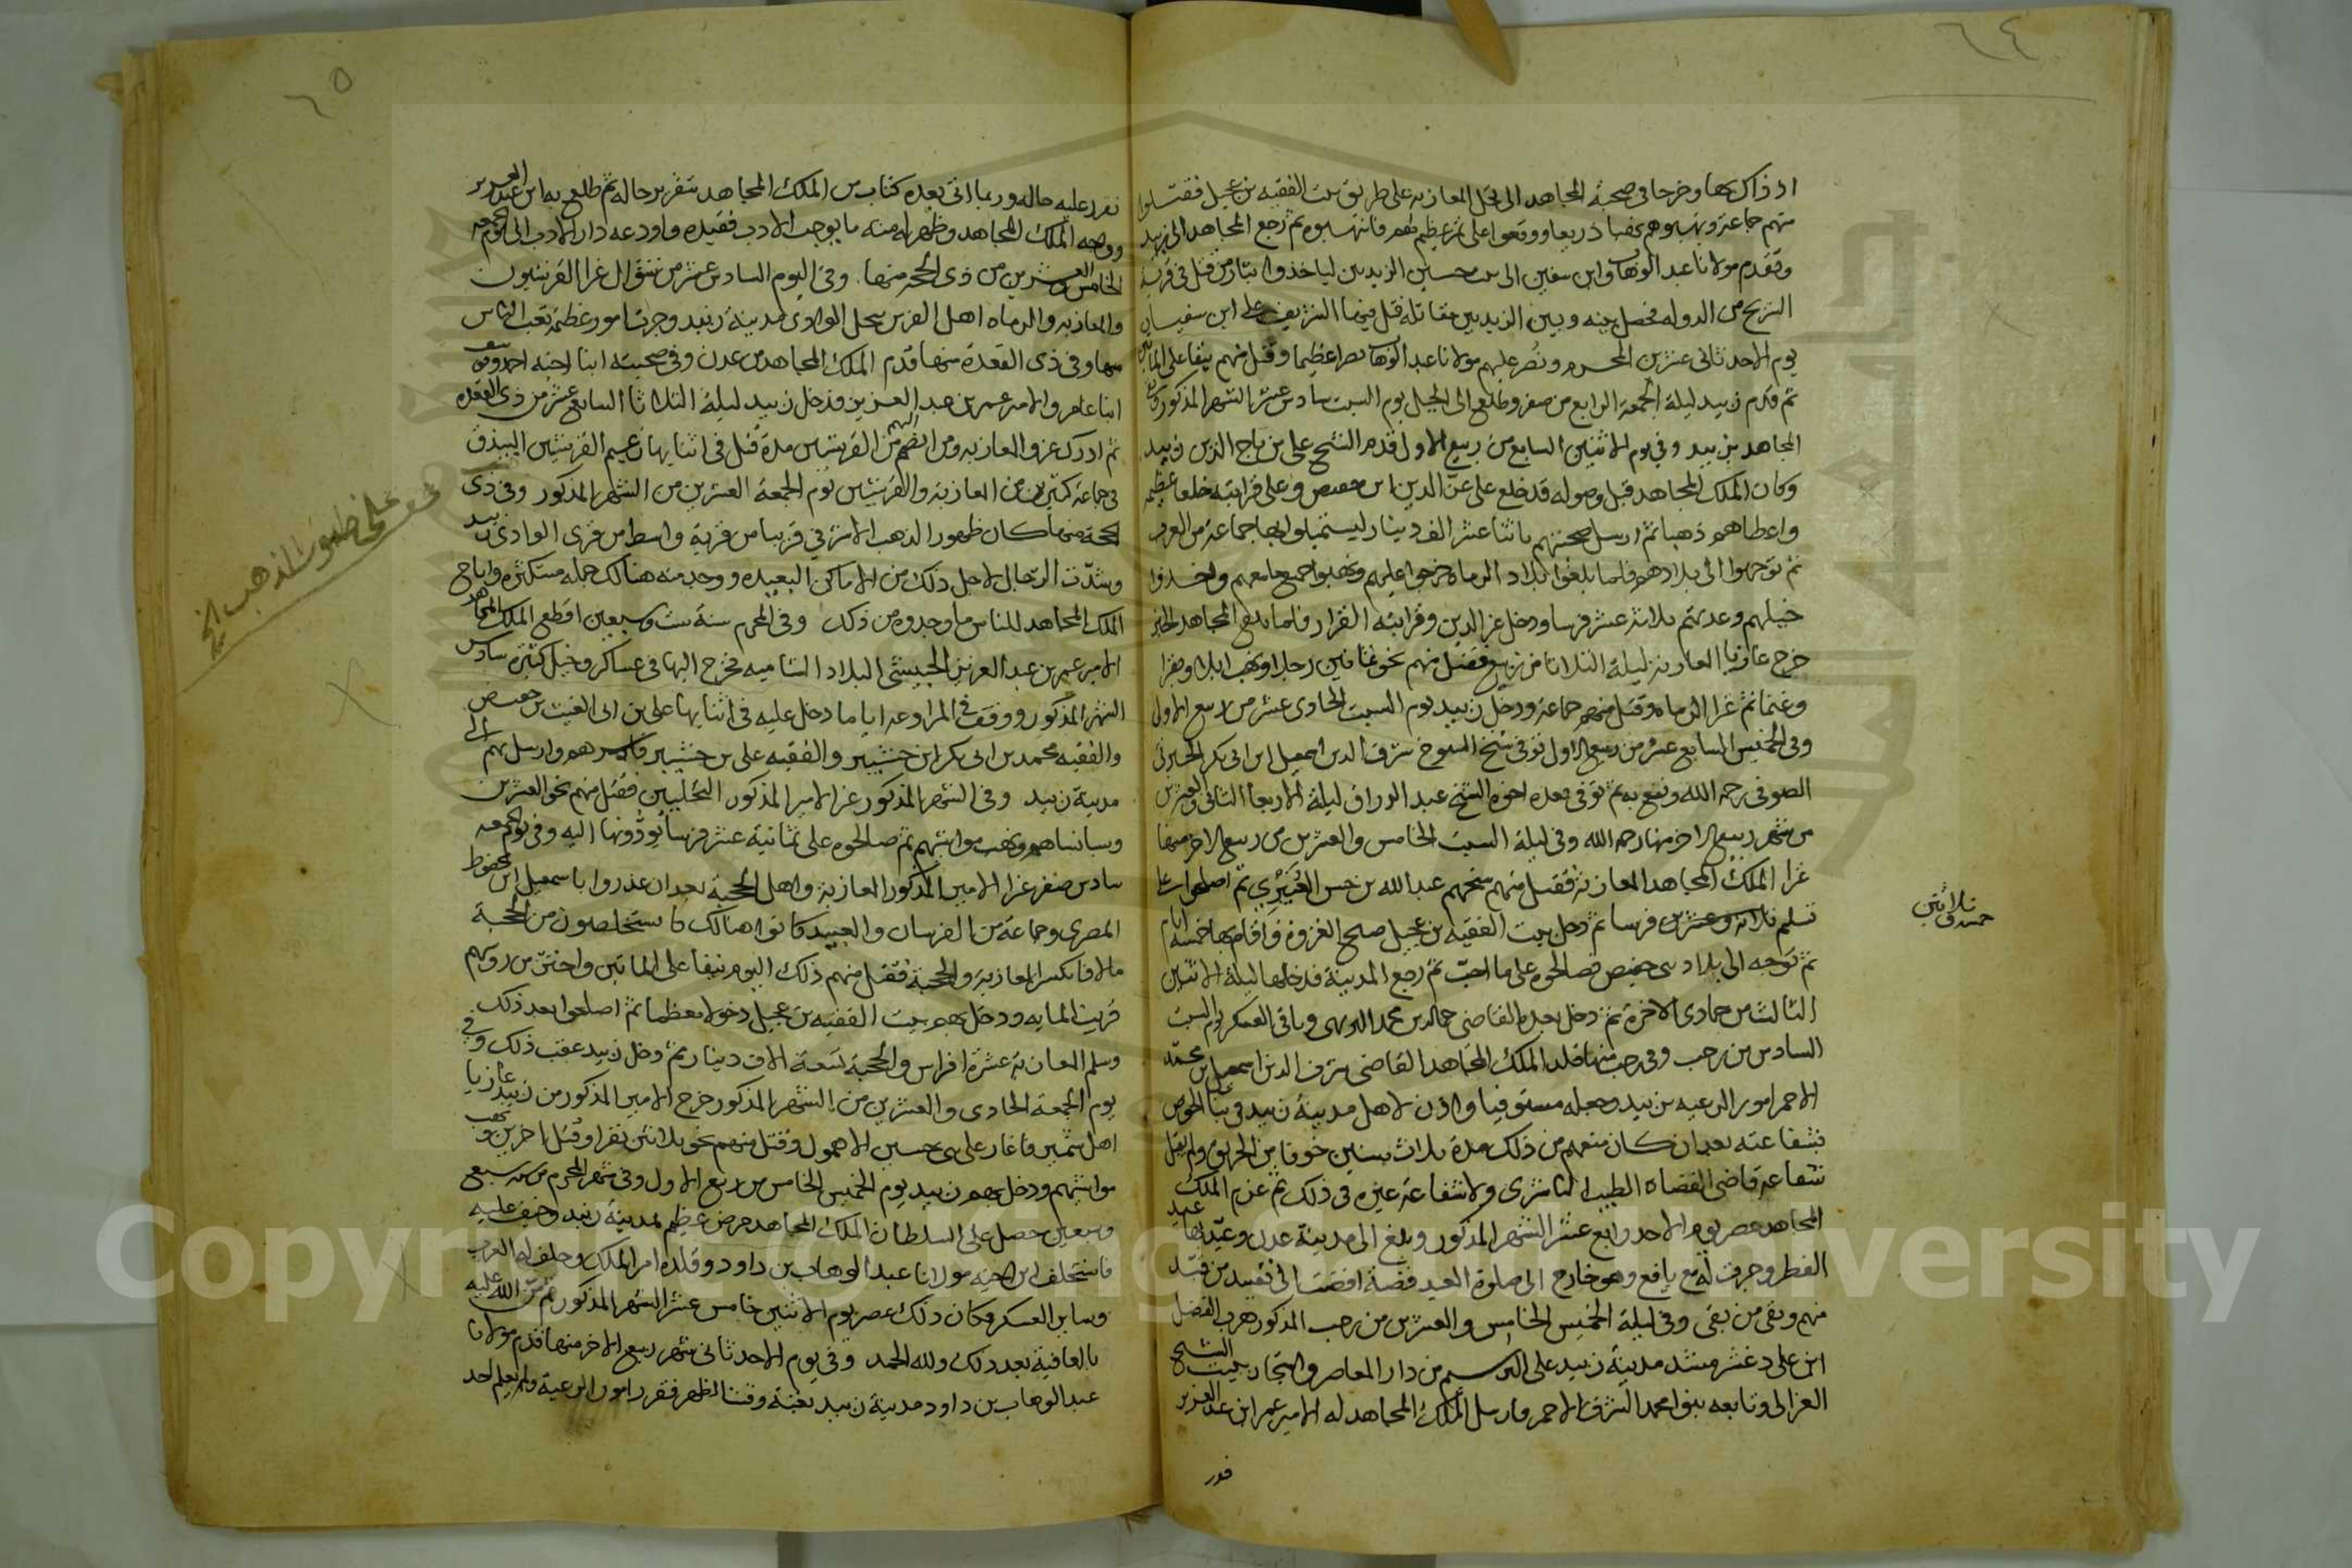 ٦٤
اذ ذاك بها وخرجا في صحبة المجاهد الى نخل المعازبه على طريق بيت الفقيه بن عجيل فقتلوا
منهم جماعة ونهبوهم نهبا ذريعا ووقعوا على تمر عظيم لهم فانتهبوه ثم رجع المجاهد الى زبيد
وتقدم مولانا عبد الوهاب وابن سفين الى الزيديين لياخذوا بثار من قتل في قرية
من الدوله فحصل بينه وبين الزيديين مقاتلة قتل فيها الشريف على ابن سفيان
يوم الاحد ثاني عشرين المحرم ونصر عليهم مولانا عبد الوهاب نصرا عظيما وقتل منهم نيفا على المائتين
ثم قدم زبيد ليلة الجمعة الرابع من صفر وطلع الى الجبل يوم السبت سادس عشر الشهر المذكور وكان
المجاهد بزبيد وفي يوم الاثنين السابع من ربيع الاول قدم الشيخ على بن تاج الدين زبيد
وكان الملك المجاهد قبل وصوله قد خلع على عز الدين ابن حفيص وعلى قرابته خلعا عظيمه
واعطاهم ذهبا ثم ارسل صحبتهم باثنا عشر الف دينار ليستميلوا بها جماعة من العرب
ثم توجهوا الى بلادهم فلما بلغوا بلاد الرماه خرجوا عليهم ونهبوا جميع ما معهم واخذوا
خيلهم وعدتهم ثلاثة عشر فرسا ودخل عز الدين وقرابته القرار فلما بلغ المجاهد الخبر
خرج غازيا المعازبة ليلة الثلاثا من ربيع فقتل منهم نحو ثمانين رجلا ونهب ابلا وبقرا
وغنما ثم غزا الرماه وقتل منهم جماعة ودخل زبيد يوم السبت الحادي عشر من ربيع الاول
وفي الخميس السابع عشر من ربيع الاول توفي شيخ الشيوخ شرف الدين اسمعيل ابن ابي بكر الجبرتي
الصوفي رحمه الله ونفع به ثم توفي بعده اخوه الشيخ عبد الرزاق ليلة الاربعا الثاني والعشرين
من شهر ربيع الاخر منها رحمه الله وفي ليلة السبت الخامس والعشرين من ربيع الاخر منها
غزا الملك المجاهد المعازبة فقتل منهم شيخهم عبد الله بن حسن ثم اصطلحوا على
تسلم ثلاثة وعشرين فرسا ثم دخل بيت الفقيه بن عجيل صلح الغزوة واقام بها خمسة ايام
ثم توجه الى بلاد بني حفيص فصالحوه على ما احب ثم رجع المدينة فدخلها ليلة الاثنين
الثالث من جمادى الاخرة ثم دخل بعده القاضي جمال الدين محمد وباقي العسكر يوم السبت
السادس من رجب وفي رجب منها قلد الملك المجاهد القاضي شرف الدين اسمعيل بن محمد
الاحمر امور الرعيه بزبيد وجعله مستوفيا واذن لاهل مدينة زبيد في بنا الخوص
بشفاعته بعد ان كان منعهم من ذلك مدة ثلاث سنين خوفا من الحريق ولم يقبل
شفاعة قاضي القضاه الطيب الناشري ولا شفاعة غيره في ذلك ثم عزم الملك
المجاهد عصر يوم الاحد رابع عشر الشهر المذكور وبلغ الى مدينة عدن وعيد بها عيد
الفطر وجرت له مع يافع وهو خارج الى صلوة العيد قضية افضت الى تقييد من قيد
منهم ونفى من نفى وفي ليلة الخميس الخامس والعشرين من رجب المذكور هرب الفضل
ابن على دغشر مشد مدينة زبيد على من دار المعاصر واستجار ببيت الشيخ
الغزالي وتابعه بنو محمد الشرف الاحمر فارسل الملك المجاهد له الامير عمر ابن عبد العزيز
ثلاثين
خمسة و
٦٥
فقرر عليه حاله وربما اتى بعده كتاب من الملك المجاهد بتقرير حاله ثم طلع به ابن عبد العزيز
وواجه الملك المجاهد وظهر له منه ما يوجب الادب فقيده واودعه دار الادب الى يوم الجمعه
الخامس والعشرين من ذي الحجة منها. وفي اليوم السادس عشر من شوال غزا القرشيون
والمعازبه والرماه اهل القرين نخل الوادي مدينة زبيد وجرت امور عظيمة تعب الناس
منها وفي ذي القعدة منها قدم الملك المجاهد من عدن وفي صحبته ابنا اخيه احمد ويوسف
ابنا عامر والامير عمر بن عبد العزيز فدخل زبيد ليلة الثلاثا السابع عشر من ذي القعده
ثم ادرك غزو المعازبه ومن انضم اليهم من القرشيين مدة قتل في اثنايها زعيم القرشيين البيدق
في جماعة كثيرين من المعازبة والقرشيين يوم الجمعة العشرين من الشهر المذكور وفي ذي
الحجة منها كان ظهور الذهب الاشرفي قريبا من قرية واسط من قرى الوادي زبيد
وشدت الرحال لاجل ذلك من الاماكن البعيده ووجد منه هنالك جمله مستكثره واباح
الملك المجاهد للناس ما وجدوه من ذلك وفي المحرم سنة ست وسبعين اقطع الملك المجاهد
الامير عمر بن عبد العزيز الحبيشي البلاد الشاميه فخرج اليها في عساكر وخيل كثيره سادس
الشهر المذكور ووقف في المراوعه اياما دخل عليه في اثنايها على بن ابي الغيث بن حفيص
والفقيه محمد بن ابي بكر ابن حشيبر والفقيه على بن حشيبر فاسرهم وارسل بهم الى
مدينة زبيد وفي الشهر المذكور غزا الامير المذكور فقتل منهم نحو العشرين
وسبا نساهم ونهب مواشيهم ثم صالحوه على ثمانية عشر فرسا يودونها اليه وفي يوم الجمعه
سادس صفر غزا الامير المذكور المعازبة واهل الحجبة بعد ان غدروا باسمعيل ابن محفوظ
المصري وجماعة من الفرسان والعبيد كانوا هنالك يستخلصون من الحجبة
مالا فانكسر المعازبة والحجبة فقتل منهم ذلك اليوم نيفا على المايتين واحتز من روسهم
قريب المايه ودخل بهم بيت الفقيه بن عجيل دخولا معظما ثم اصطلحوا بعد ذلك
وسلم المعازبة عشرة افراس والحجبة تسعة الاف دينار ثم دخل زبيد عقب ذلك وفي
يوم الجمعة الحادي والعشرين من الشهر المذكور خرج الامير المذكور من زبيد غازيا
اهل فاغار على بني حسين الاهمول وقتل منهم نحو ثلاثين نفرا وقتل اخرين ونهب
مواشيهم ودخل بهم زبيد يوم الخميس الخامس من ربيع الاول وفي شهر المحرم من سنة سبع
وسبعين حصل على السلطان الملك المجاهد مرض عظيم بمدينة زبيد وخيف عليه
فاستخلف ابن اخيه مولانا عبد الوهاب بن داود وقلده امر الملك وحلف له العرب
وساير العسكر وكان ذلك عصر يوم الاثنين خامس عشر الشهر المذكور ثم من الله عليه
بالعافية بعد ذلك ولله الحمد وفي يوم الاحد ثاني شهر ربيع الاخر منها قدم مولانا
عبد الوهاب بن داود مدينة زبيد بغتة وقت الظهر فقرر امور الرعية ولم يعلم احد
على ظهور الذهب الخ